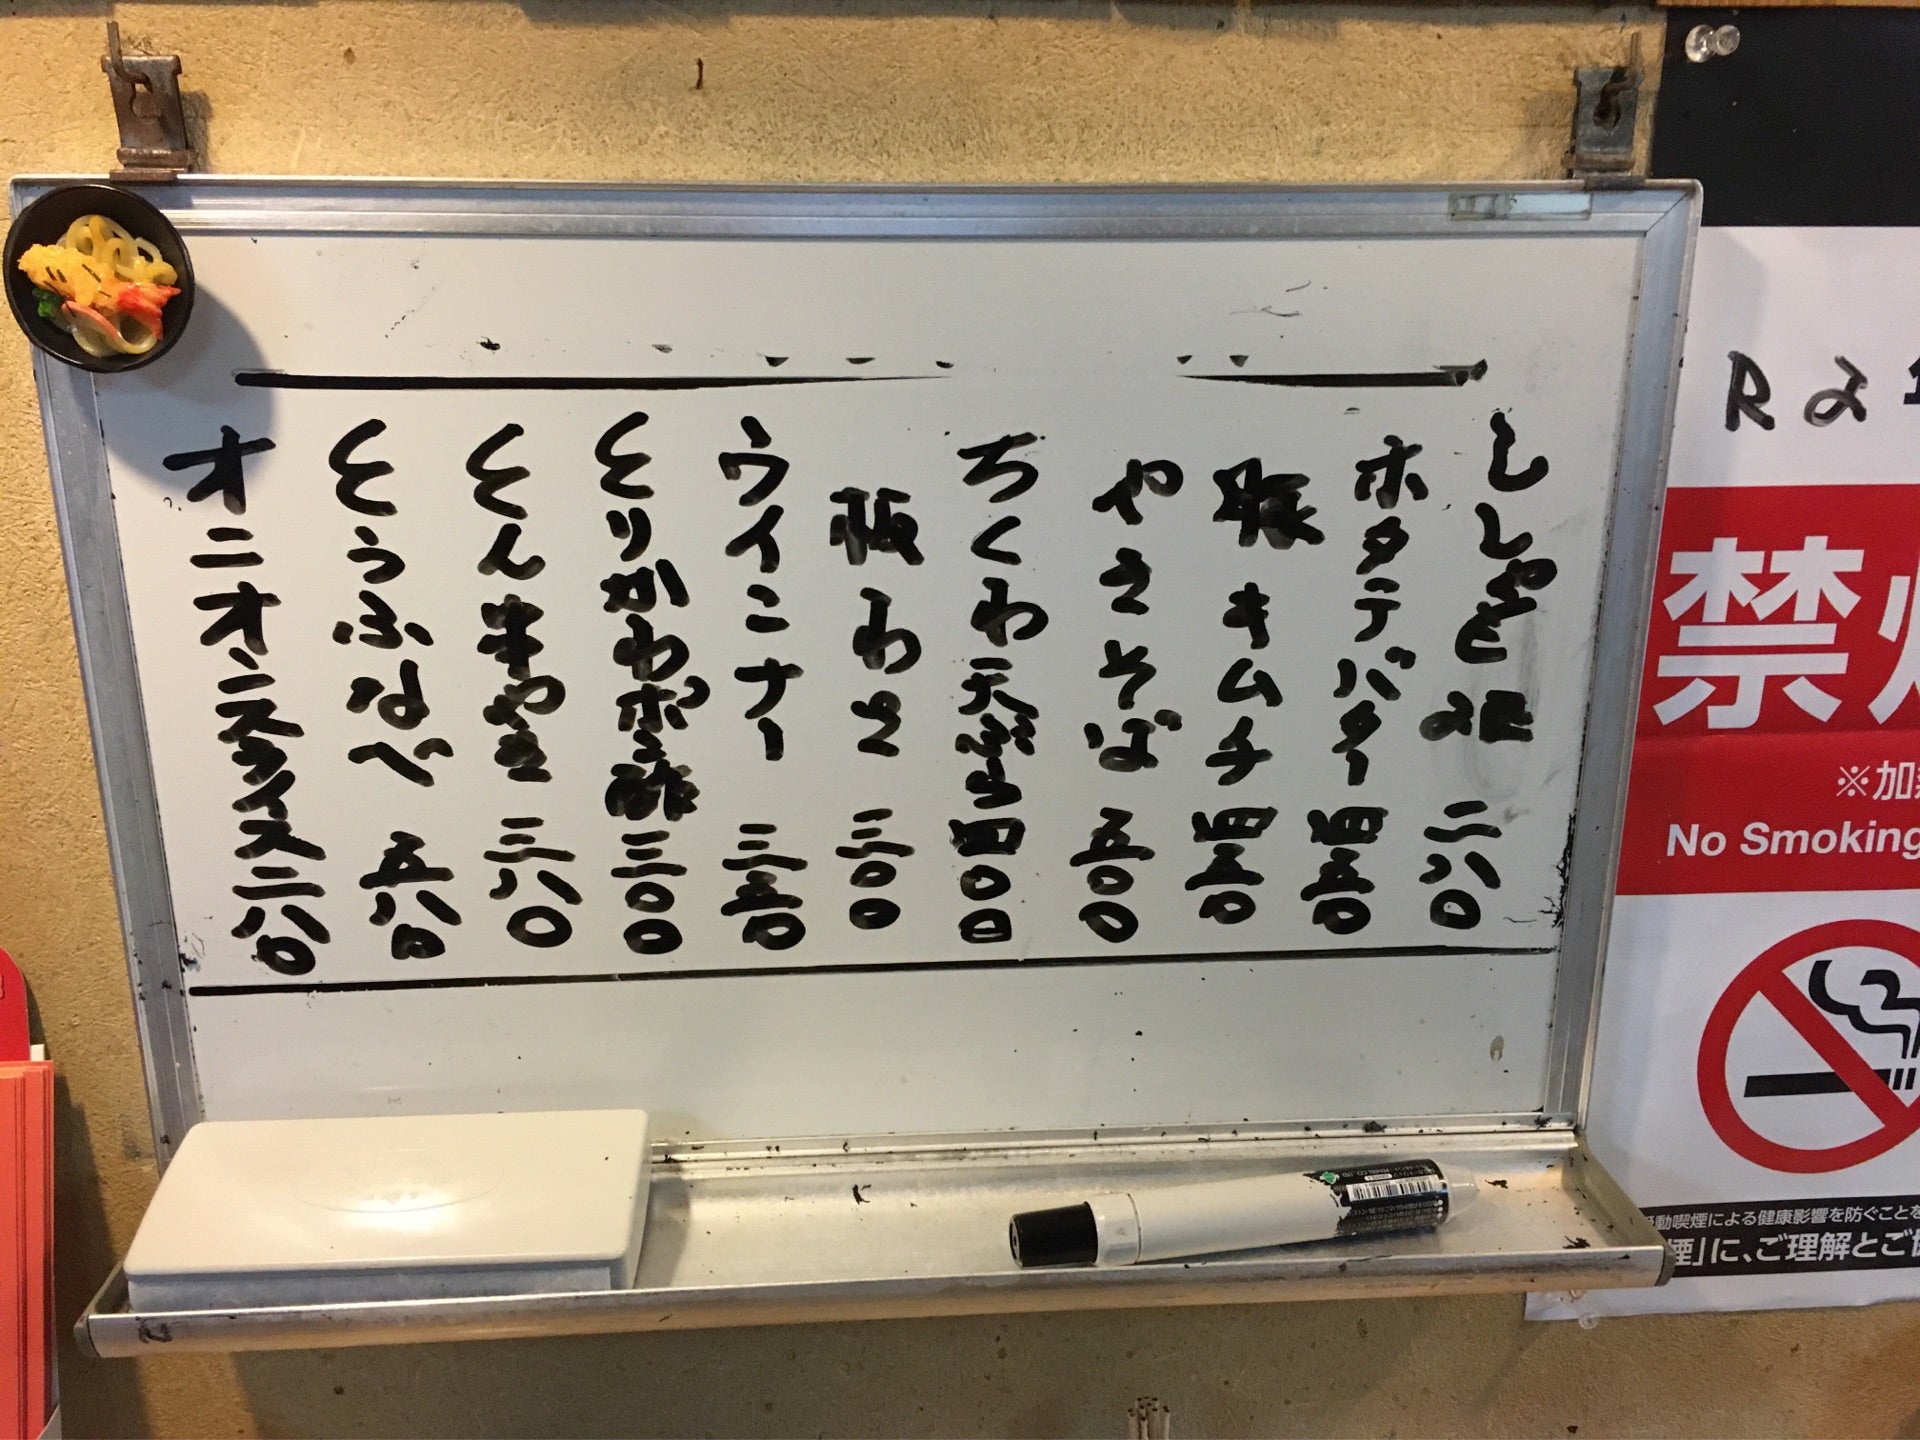 ししゃも 2匹 二八〇
ホタテバター 四五〇
豚キムチ 四五〇
やきそば 五〇〇
ちくわ天ぷら 四〇〇
板わさ 三〇〇
ウインナー 三五〇
とりかわポン酢 三〇〇
とん平やき 三八〇
とうふなべ 五八〇
オニオンスライス 二八〇
R2
禁
※加
No Smoking
動喫煙による健康影響を防ぐことを
煙」に、ご理解とご